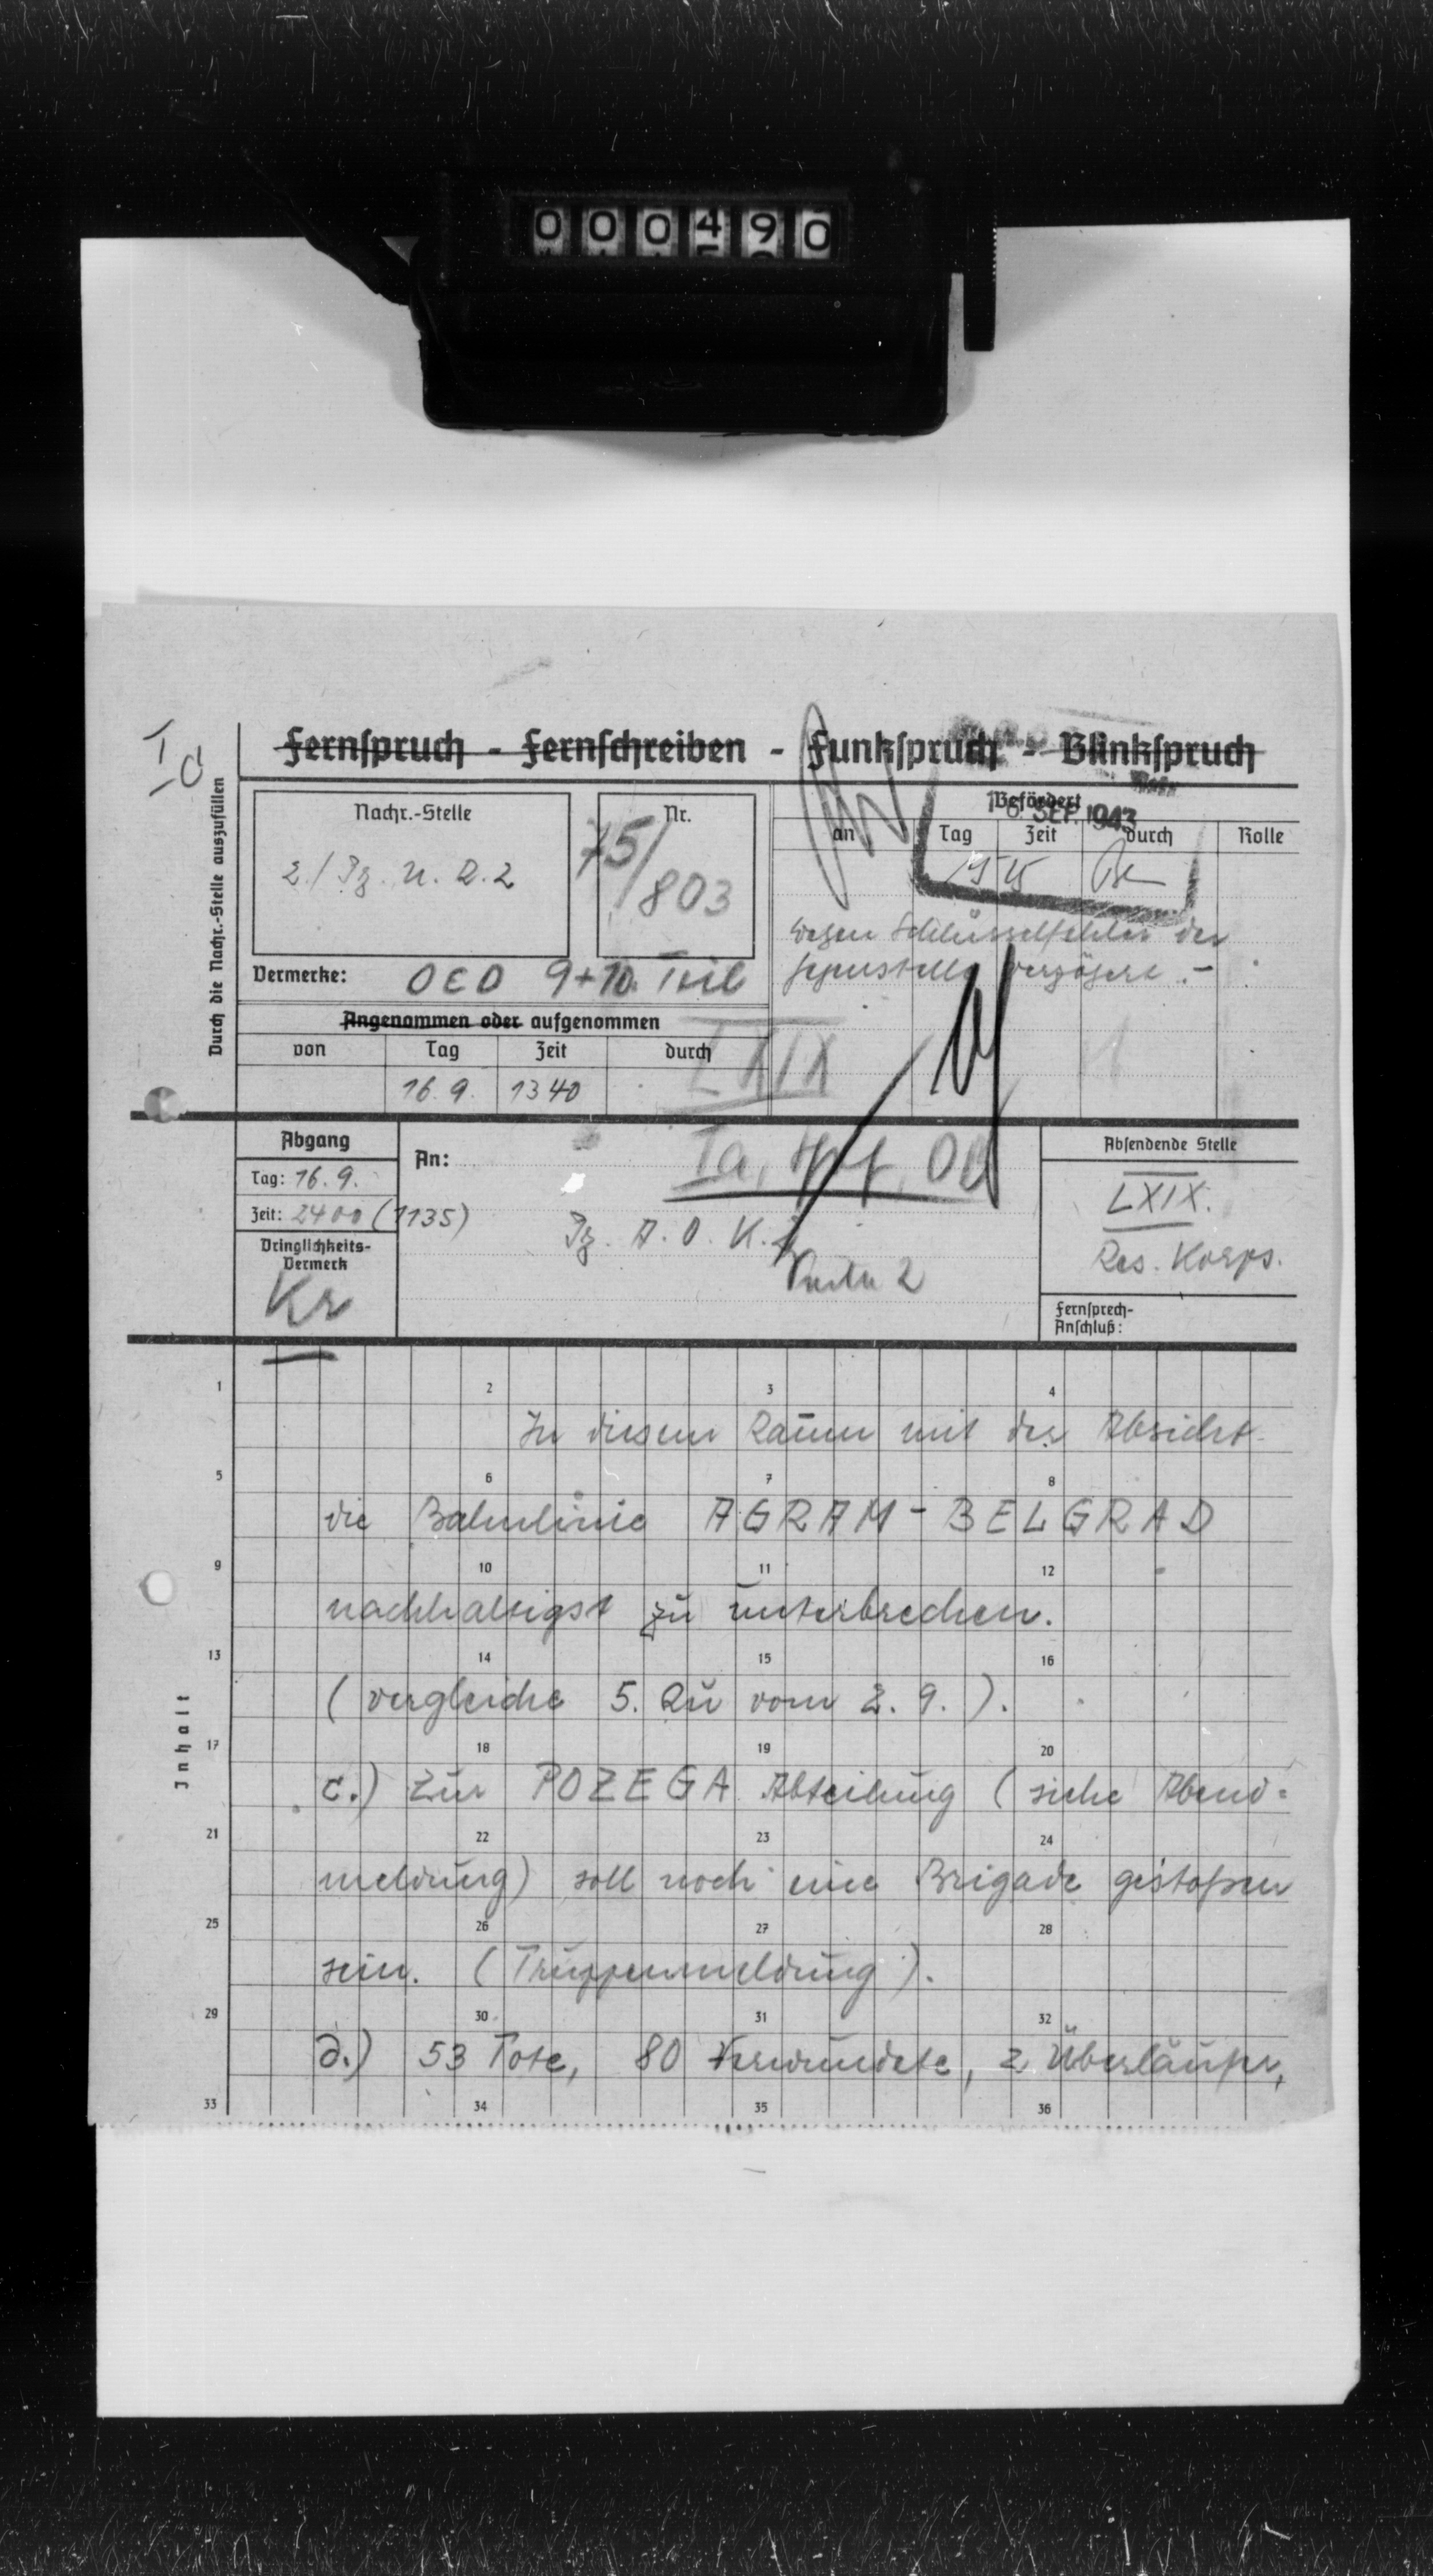 000490
Ic
Fernspruch - Fernschreiben - Funkspruch - Blinkspruch
Durch die Nachr.-Stelle auszufüllen
Nachr.-Stelle
2./Pz. N. R. 2
Nr.
75/803
Befördert
16. SEP. 1943
an Tag Zeit durch Rolle
1515
wegen Schlüsselfehler der
Gegenstelle verzögert. -
Vermerke: OEO 9+10. Teil
Angenommen oder aufgenommen
von Tag Zeit durch
16. 9. 1340
LXIX
Abgang
Tag: 16. 9.
Zeit: 2400 (1135)
Dringlichkeits-
Vermerk
Kr
An:
Ia,
Pz. A. O. K. 2
Absendende Stelle
LXIX.
Res. Korps.
Fernsprech-
Anschluß:
Inhalt
1 2 3 4
In diesem Raum mit der Absicht
5 6 7 8
die Bahnlinie AGRAM - BELGRAD
9 10 11 12
nachhaltigst zu unterbrechen.
13 14 15 16
(vergleiche 5. Zu vom 2. 9.).
17 18 19 20
c.) Zur POZEGA Abteilung (siehe Abend=
21 22 23 24
meldung) soll noch eine Brigade gestoßen
25 26 27 28
sein. (Truppenmeldung).
29 30 31 32
d.) 53 Tote, 80 Verwundete, 2 Überläufer,
33 34 35 36